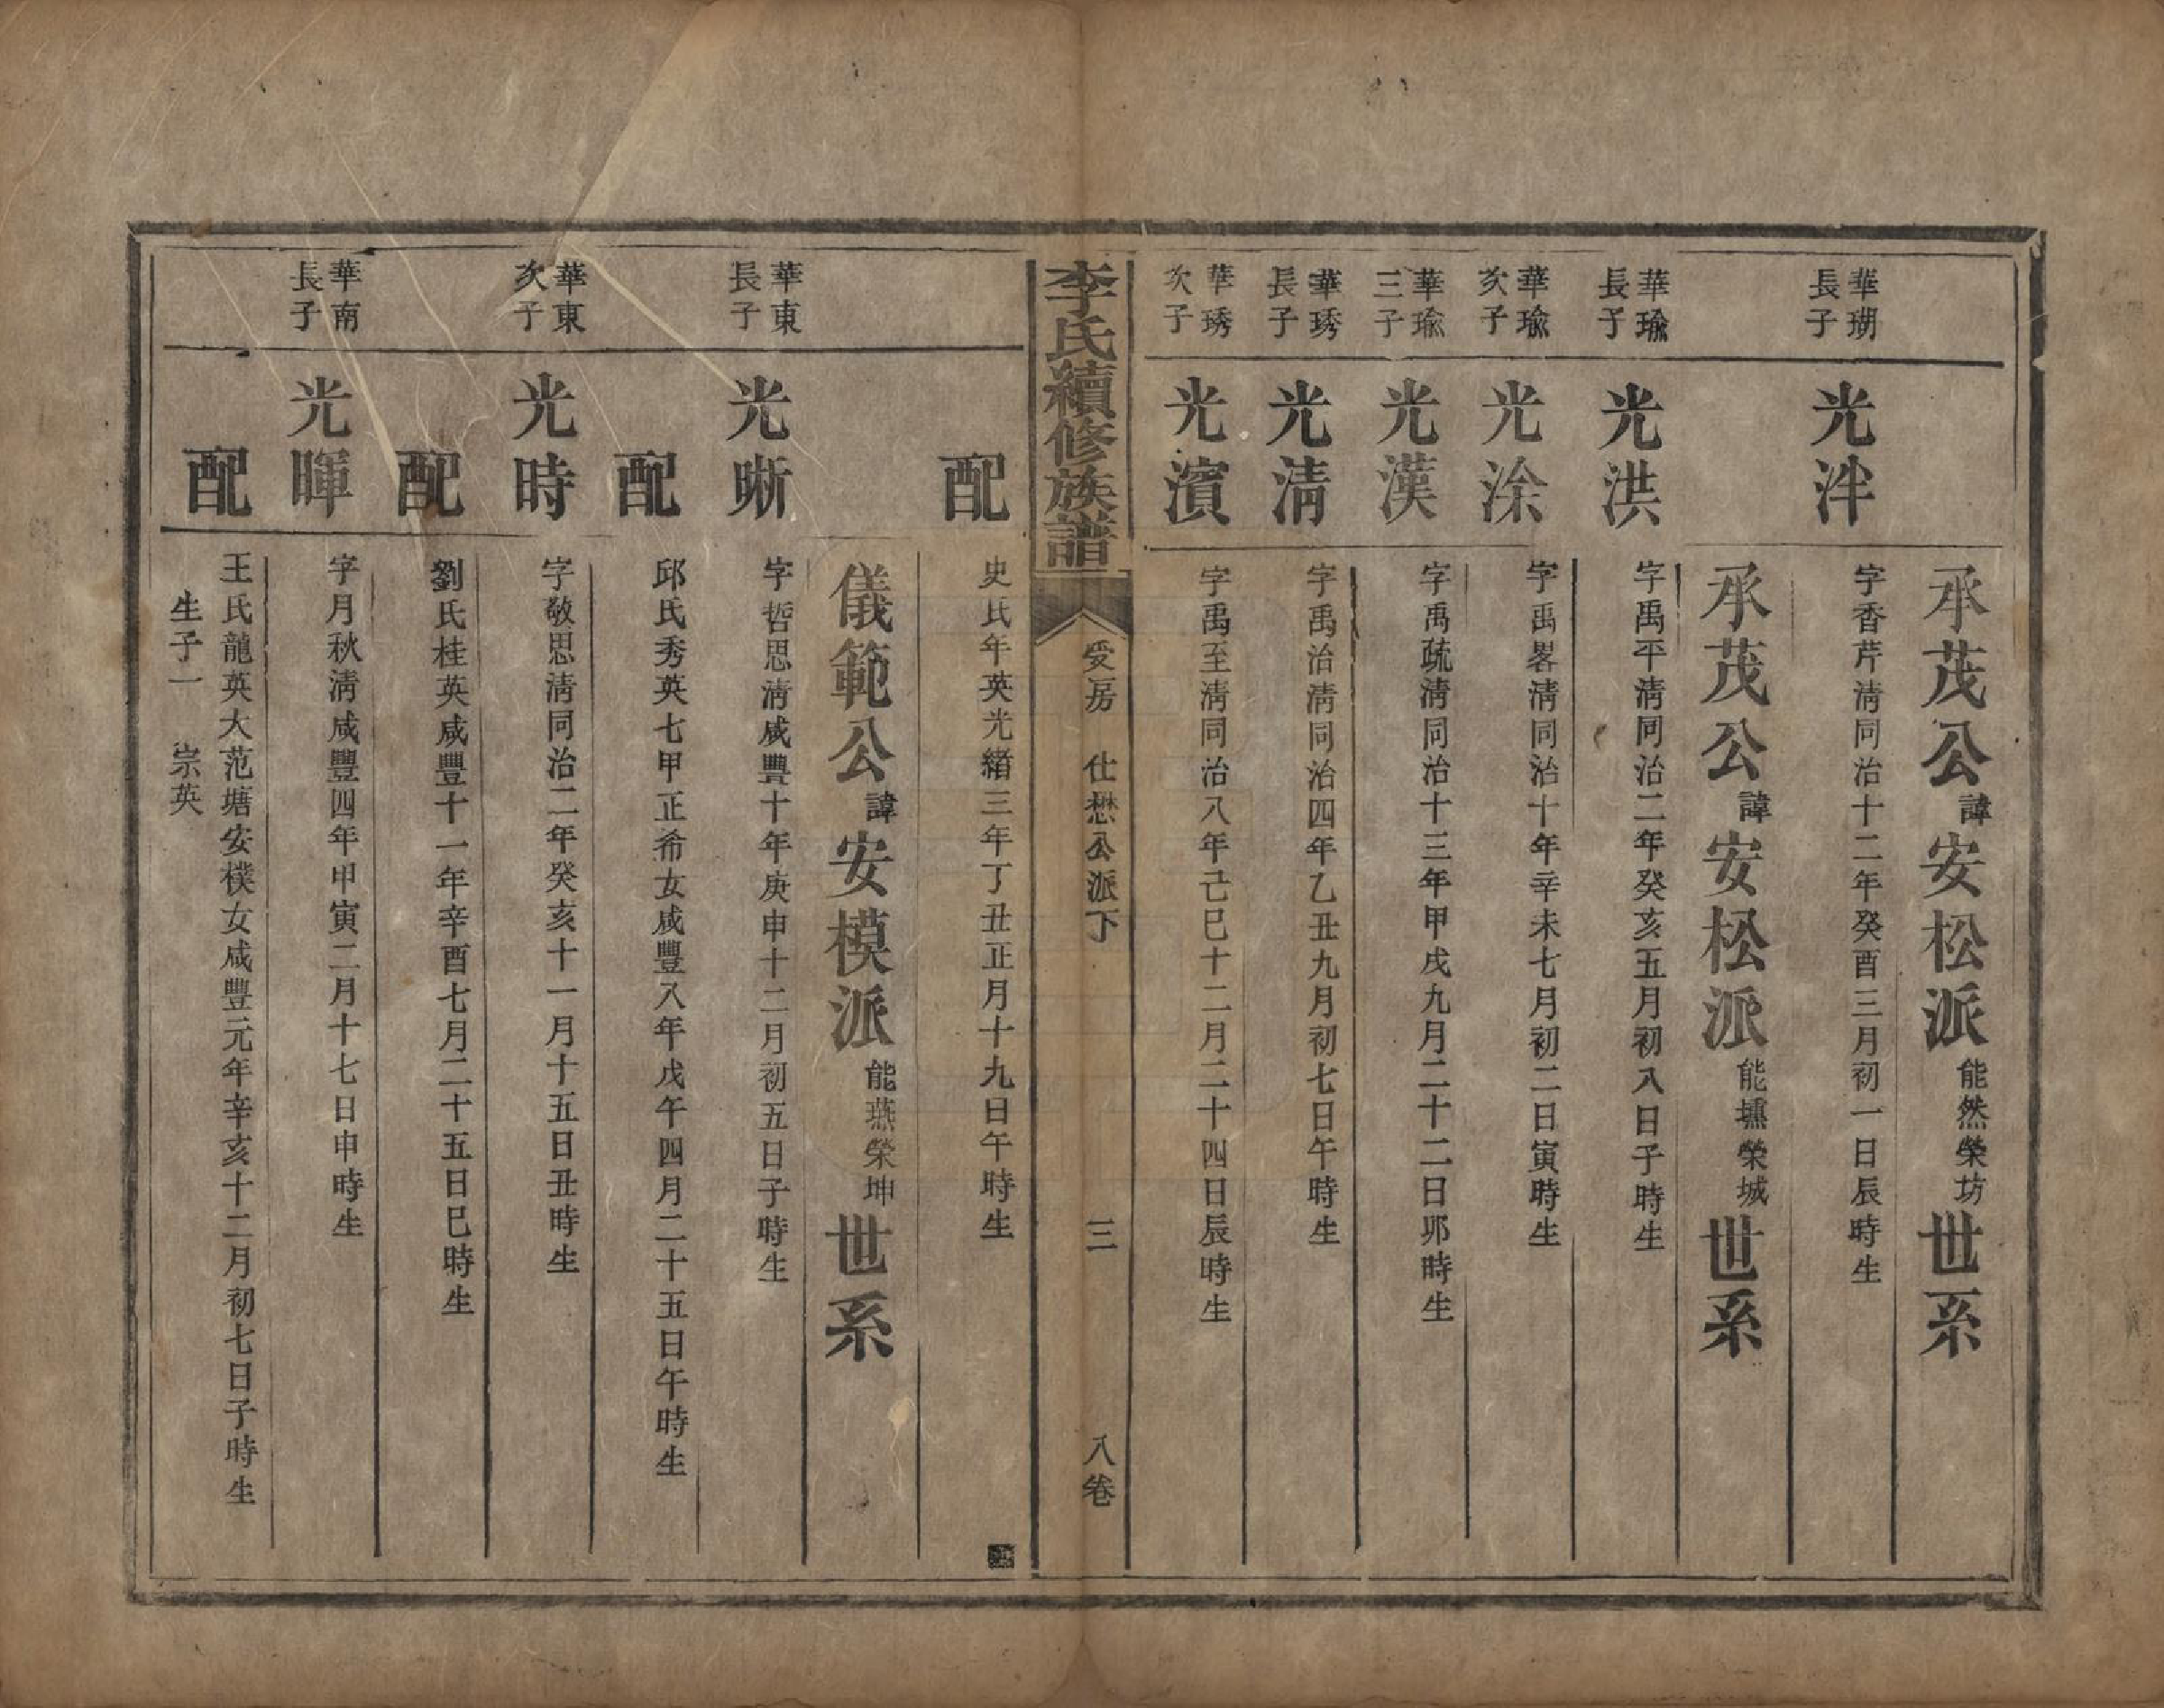 承茂公諱安松派能然榮坊世系
華瑚長子
光泮
字香芹淸同治十二年癸酉三月初一日辰時生
承茂公諱安松派能壎榮城世系
華瑜長子
光洪
字禹平淸同治二年癸亥五月初八日子時生
華瑜次子
光涂
字禹畧淸同治十年辛未七月初二日寅時生
華瑜三子
光漢
字禹疏淸同治十三年甲戌九月二十二日夘時生
華琇長子
光淸
字禹治淸同治四年乙丑九月初七日午時生
華琇次子
光濱
字禹至淸同治八年己巳十二月二十四日辰時生
李氏續修族譜
受房 仕懋公派下
三
八卷
配
史氏年英光緒三年丁丑正月十九日午時生
儀範公諱安模派能燕榮坤世系
華東長子
光晣
字哲思淸咸豐十年庚申十二月初五日子時生
配
邱氏秀英七甲正希女咸豐八年戊午四月二十五日午時生
華東次子
光時
字敬思淸同治二年癸亥十一月十五日丑時生
配
劉氏桂英咸豐十一年辛酉七月二十五日巳時生
華南長子
光暉
字月秋淸咸豐四年甲寅二月十七日申時生
配
王氏龍英大范塘安樸女咸豐元年辛亥十二月初七日子時生
生子一 崇英